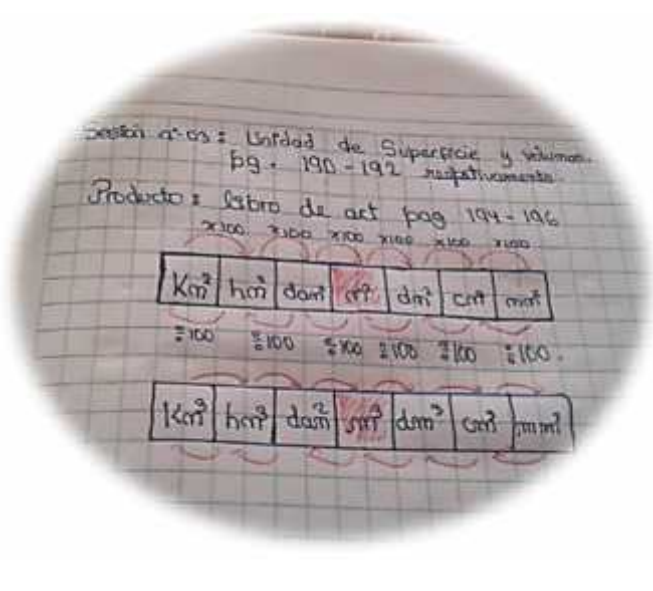 Sesión n° 03: Unidad de Superficie y volumen.
pg. 190 - 192 respetivamente.
Producto: libro de act pag 194 - 196
x100 x100 x100 x100 x100 x100
Km² hm² dam² m² dm² cm² mm²
÷100 ÷100 ÷100 ÷100 ÷100 ÷100.
Km³ hm³ dam² m³ dm³ cm³ mm³